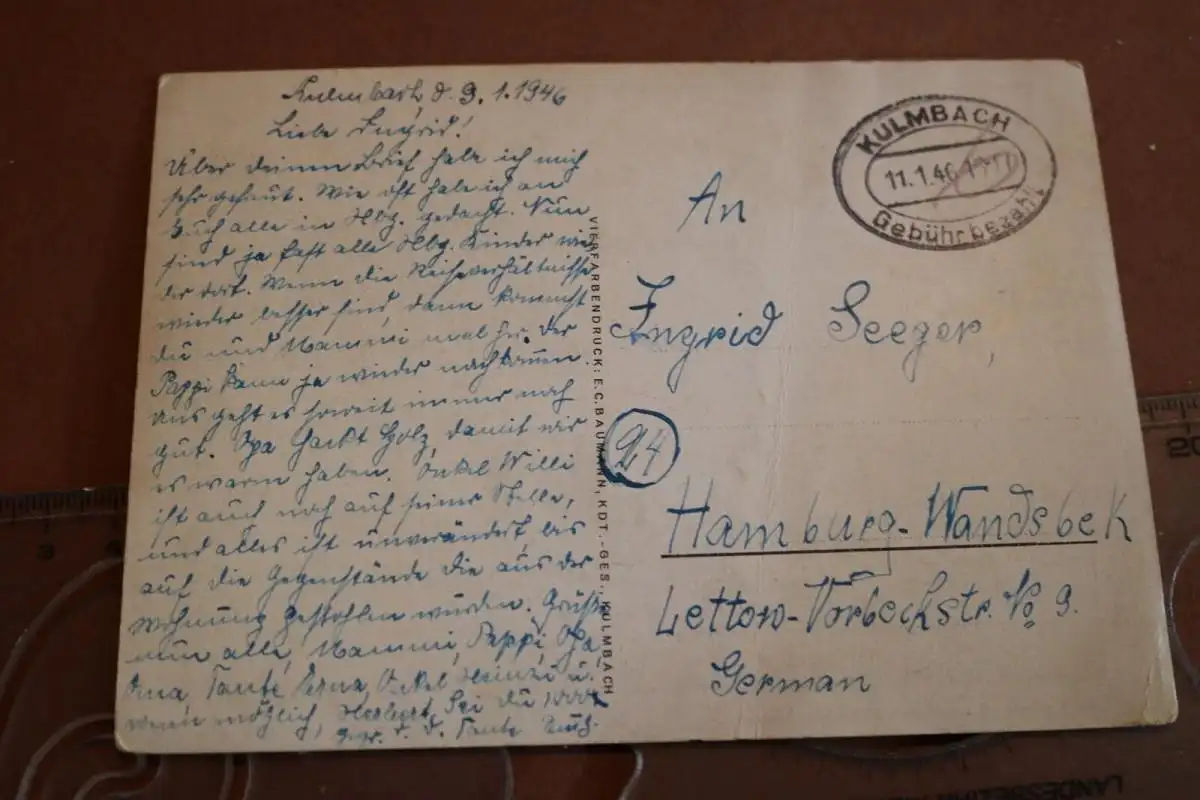 Kulmbach, d. 9.1.1946
Liebe Ingrid!
Über deinen Brief habe ich mich
sehr gefreut. Wie oft habe ich an
Euch alle in Hbg. gedacht. Nun
sind ja fast alle Hbg. Kinder wie
der dort. Wenn die Reiseverhältnisse
wieder besser sind, dann kommst
du und Mammi mal her. Der
Pappi kann ja wieder nachkommen.
Uns geht es soweit immer noch
gut. Opa hackt Holz, damit wir
es warm haben. Onkel Willi
ist auch noch auf seiner Stelle,
und alles ist unverändert bis
auf die Gegenstände die aus der
Wohnung gestohlen wurden. Grüße
nun alle, Mammi, Pappi, Opa,
Oma, Tante Erna, Onkel Heinzi u.
wenn möglich, Herbert. Sei du,
gegr. v. d. Tante
VIERFARBENDRUCK: E.C. BAUMANN, KDT.-GES., KULMBACH
KULMBACH
11.1.46
Gebühr bezahlt
An
Ingrid Seeger,
24
Hamburg-Wandsbek
Lettow-Vorbeckstr. No 9.
German